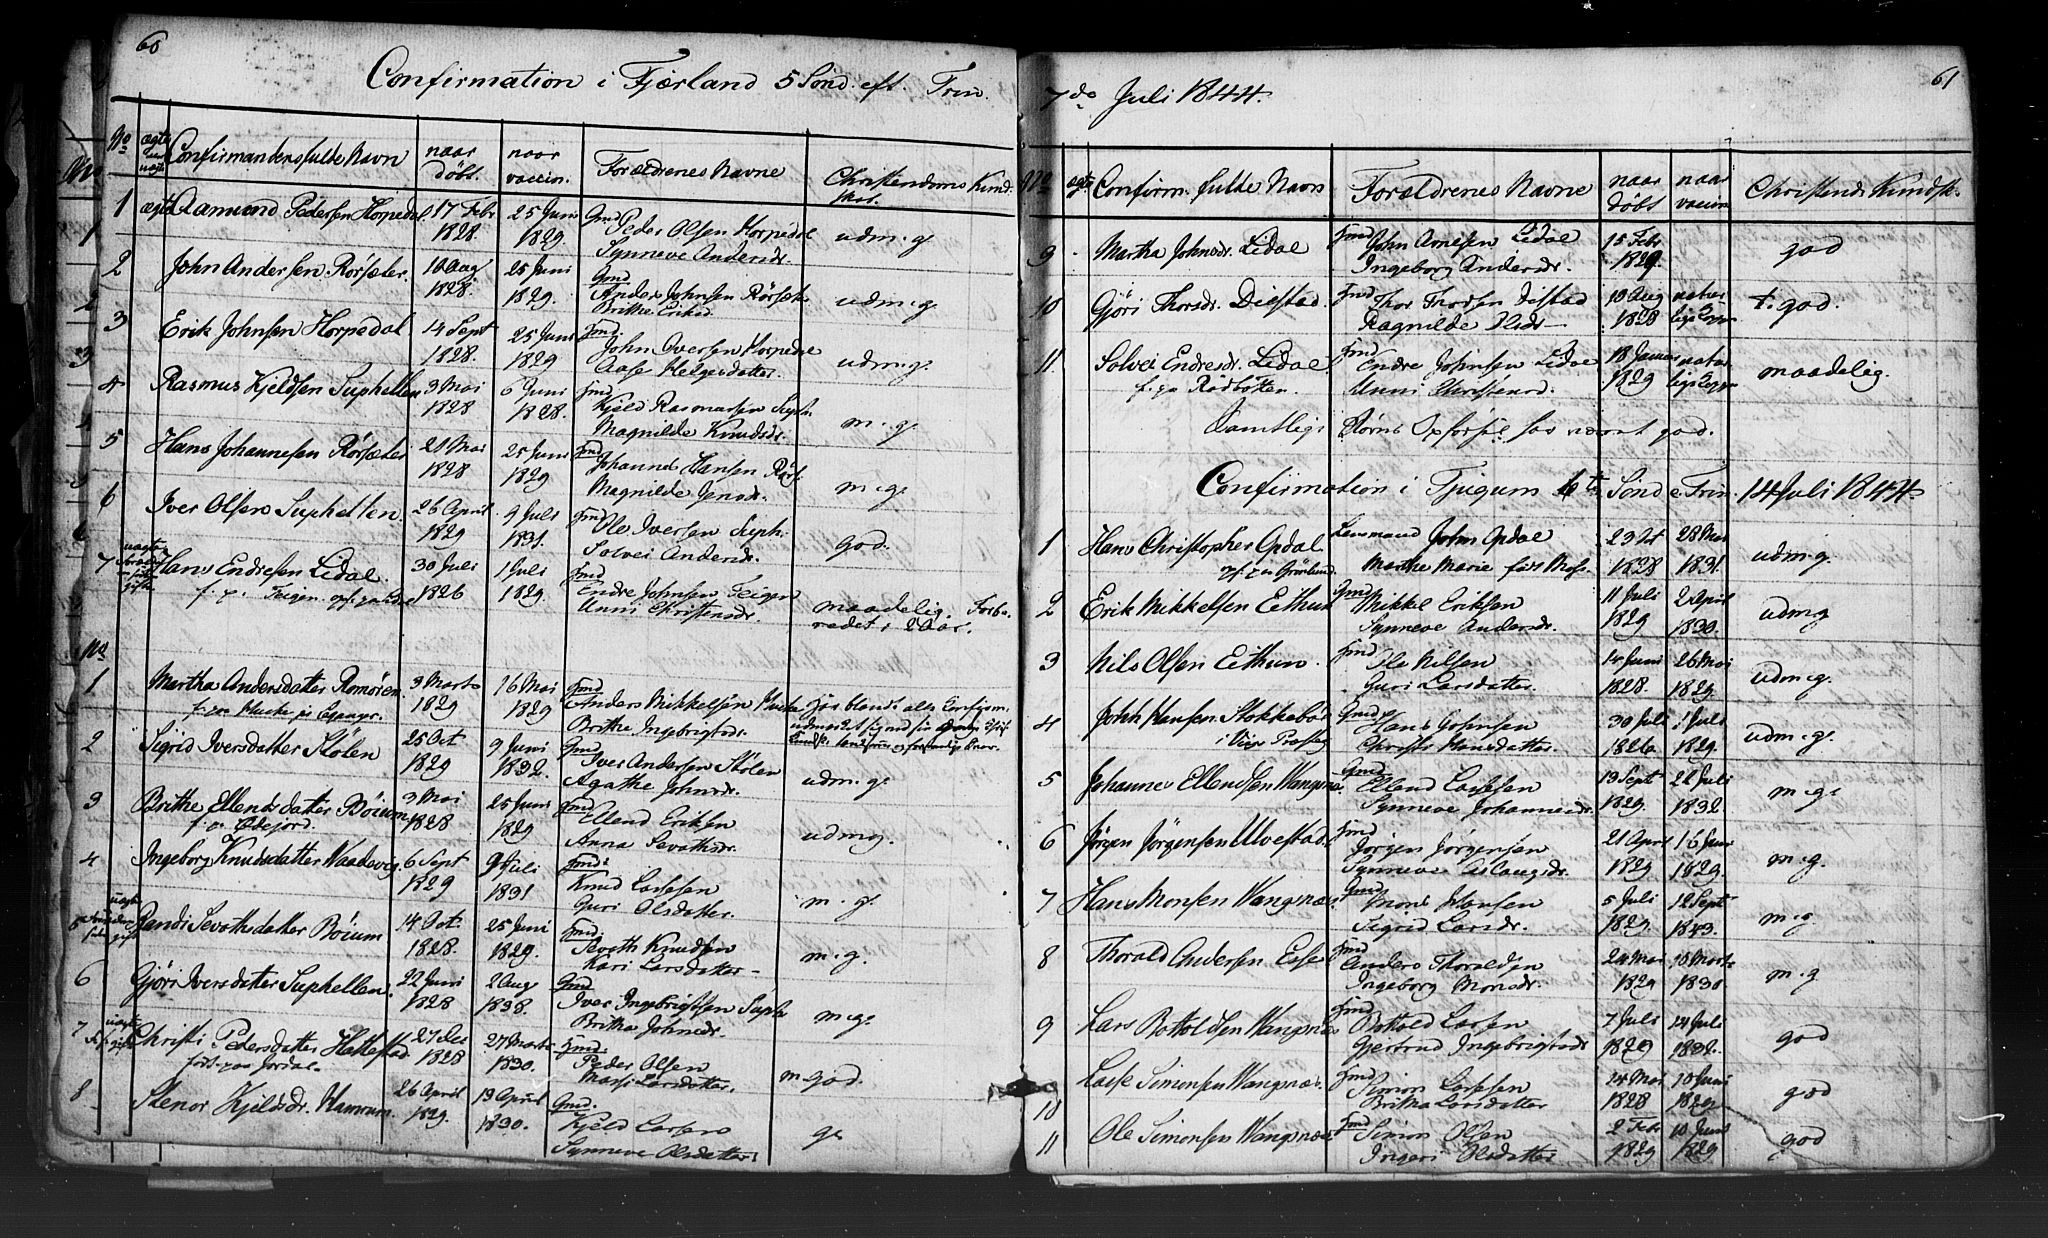 60
Confirmation i Fjærland 5 Sönd. eft. Trin.
No ægte eller uægte Confirmandens fulde Navn naar döbt. naar vaccin. Forældrenes Navne Christendoms Kundskab.
1 ægte Aamund Pedersen Horpedal 17 Febr 1828. 25 Juni 1829. Gmd Peder Olsen Horpedal
Synneve Andersdr. udm. g.
2 John Andersen Rörsæter. 10 Aug 1828. 25 Juni 1829. Gmd.
Anders Johnsen Rörsæt.
Brithe Eriksd. udm. g
3 Erik Johnsen Horpedal 14 Sept 1828. 25 Juni 1829 Gmd.
John Oversen Horpedal
Aase Helgesdatter. udm. g.
4 Rasmus Kjeldsen Suphellen 3 Mai 1828 6 Juni 1828. Gmd
Kjeld Rasmussen Suph.
Magnilde Knudsdr. m. g.
5 Hans Johannesen Rörsæter 21 Mai 1828 25 Juni 1829 Gmd
Johannes Hansen Rörs.
Magnilde Jensdr. m. g.
6 Iver Olsen Suphellen. 26 April 1829 9 Juli 1831. Gmd
Ole Iversen Suph.
Solvei Andersdr. god.
7 uægte Hans Endresen Lidal. 30 Juli 1826 1 Juli 1829. Gmd
Endre Johnsen Teigen
Unni Christensdr. maadelig. Forbe-
redet i 2 Aar.
No
1 Martha Andersdatter Romören 3 Marts 1829 16 Mai 1829 Gmd
Anders Mikkelsen
Brithe Ingebrigtsdr. har blandt alle Confirm.
udmærket sig ved sin
2 Sigrid Iversdatter Stölen 25 Oct 1829 9 Juni 1832. Gmd
Iver Andersen Stölen
Agathe Johnsdr. udm. g.
3 Brithe Ellendsdatter Böium 3 Mai 1828 25 Juni 1829 Gmd
Ellend Eriksen
Anna Sevathsdr. udm g.
4 Ingeborg Knudsdatter Vaadeveg 6 Sept 1829 9 Juli 1831 Gmd:
Knud Larssen
Guri Olsdatter. m. g.
5 uægte Randi Sevathsdatter Böium 14 Oct. 1828. 25 Juni 1829. Gmd.
Sevath Knudsen
Kari Larsdatter m. g.
6 Gjöri Iversdatter Suphellen. 22 Juni 1828 2 Aug 1838. Gmd
Iver Ingebrigtsen Suph.
Britha Johnsdr. m. g.
7 uægte Christi Pedersdatter Hattestad 27 Dec 1828 27 Marts 1830. Gmd.
födt paa Jordal Peder Olsen
Larsdatter. m. god.
8 Stenor Kjeldsdr. Hamrum. 26 April 1829. 19 April 1830. Gmd.
Kjeld Larsen
Synneve Olsdatter. g.
61
7de Juli 1844.
No ægte Confirm. fulde Navn Forældrenes Navne naar döbt naar vaccin Christend. Kundsk.
9 Martha Johnsdr. Lidal Gmd John Arnesen Lidal
Ingeborg Andersdr. 15 Febr 1829. god
10 Gjöri Thorsdr. Distad. Gmd Thor Thorsen Distad
Ragnilde Olsdr 19 Aug 1828 naturlige Kopper t. god.
11 Solvei Endresdr. Lidal Gmd Endre Johnsen Lidal
Unni Christensd. 18 Januar 1829 naturlige Kopper maadelig.
Samtlige Börns Opförsel har været god.
Confirmation i Tjugum 6te Sönd e. Trin. 14 Juli 1844
1 Hans Christopher Opdal Lensmand John Opdal
Marthe Marie 23 Oct 1828 28 Mai 1831. udm. g.
2 Erik Mikkelsen Eithun Gmd Mikkel Eriksen
Synneve Andersdr. 11 Juli 1829 2 April 1830. udm g
3 Nils Olsen Eithun. Gmd Ole Nilsen
Guri Larsdatter. 14 Juni 1828. 26 Mai 1829. udm. g.
4 John Hansen Stokkebö Gmd Hans Johnsen
i Viigs Præsteg. Christi Hansdatter. 30 Juli 1826. 1 Juli 1829. udm. g.
5 Johannes Ellendsen Vangsnæs Gmd Ellend Larssen
Synneve Johannesdr. 19 Sept 1829. 22 Juli 1832. m. g.
6 Jörgen Jörgensen Ulvestad Gmd Jörgen Jörgensen
Synneve Aslaugsdr. 21 April 1829 16 Juni 1829. m. g.
7 Hans Monsen Vangsnæs Gmd Mons Hansen
Sigrid Larsdr. 5 Juli 1829. 12 Sept 1843. m. g.
8 Thorald Andersen Esse Gmd Anders Thoraldsen
Ingeborg Monsdr. 24 Mai 1829 10 Marts 1830 m. g
9 Lars Bottoldsen Vangsnæs Gmd Bottold Larsen
Gjertrud Ingebrigtsdr 7 Juli 1829 14 Juli 1832. god
10 Lasse Simonsen Vangsnæs. Gmd Simon Larsen
Britha Larsdatter 24 Mai 1828 10 Juni 1829 god
11 Ole Simonsen Vangsnæs Gmd Simon Olsen
Ingeri Olsdatter 2 Febr 1829 10 Juni 1829 god